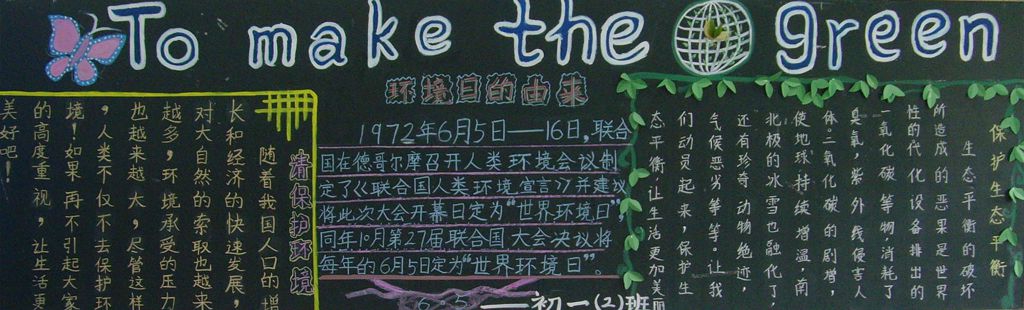 To make the green
环境日的由来
1972年6月5日——16日,联合
国在德哥尔摩召开人类环境会议制
定了《联合国人类环境宣言》并建议
将此次大会开幕日定为“世界环境日”
同年10月第27届联合国大会决议将
每年的6月5日定为“世界环境日”。
6.5——初一(2)班
请保护环境
随着我国人口的增
长和经济的快速发展,
对大自然的索取也越来
越多,环境承受的压力
也越来越大,尽管这样
,人类不仅不去保护环
境!如果再不引起大家
的高度重视,让生活更
美好吧!
保护生态平衡
生态平衡的破坏
所造成的恶果是世界
性的代化设备排出的
一氧化碳等物,消耗了
臭氧,紫外线侵害人
体。二氧化碳的剧增,
使地球持续增温,南
北极的冰雪也融化了,
还有珍奇动物绝迹,
气候恶劣等等。让我
们动员起来,保护生
态平衡,让生活更加美丽